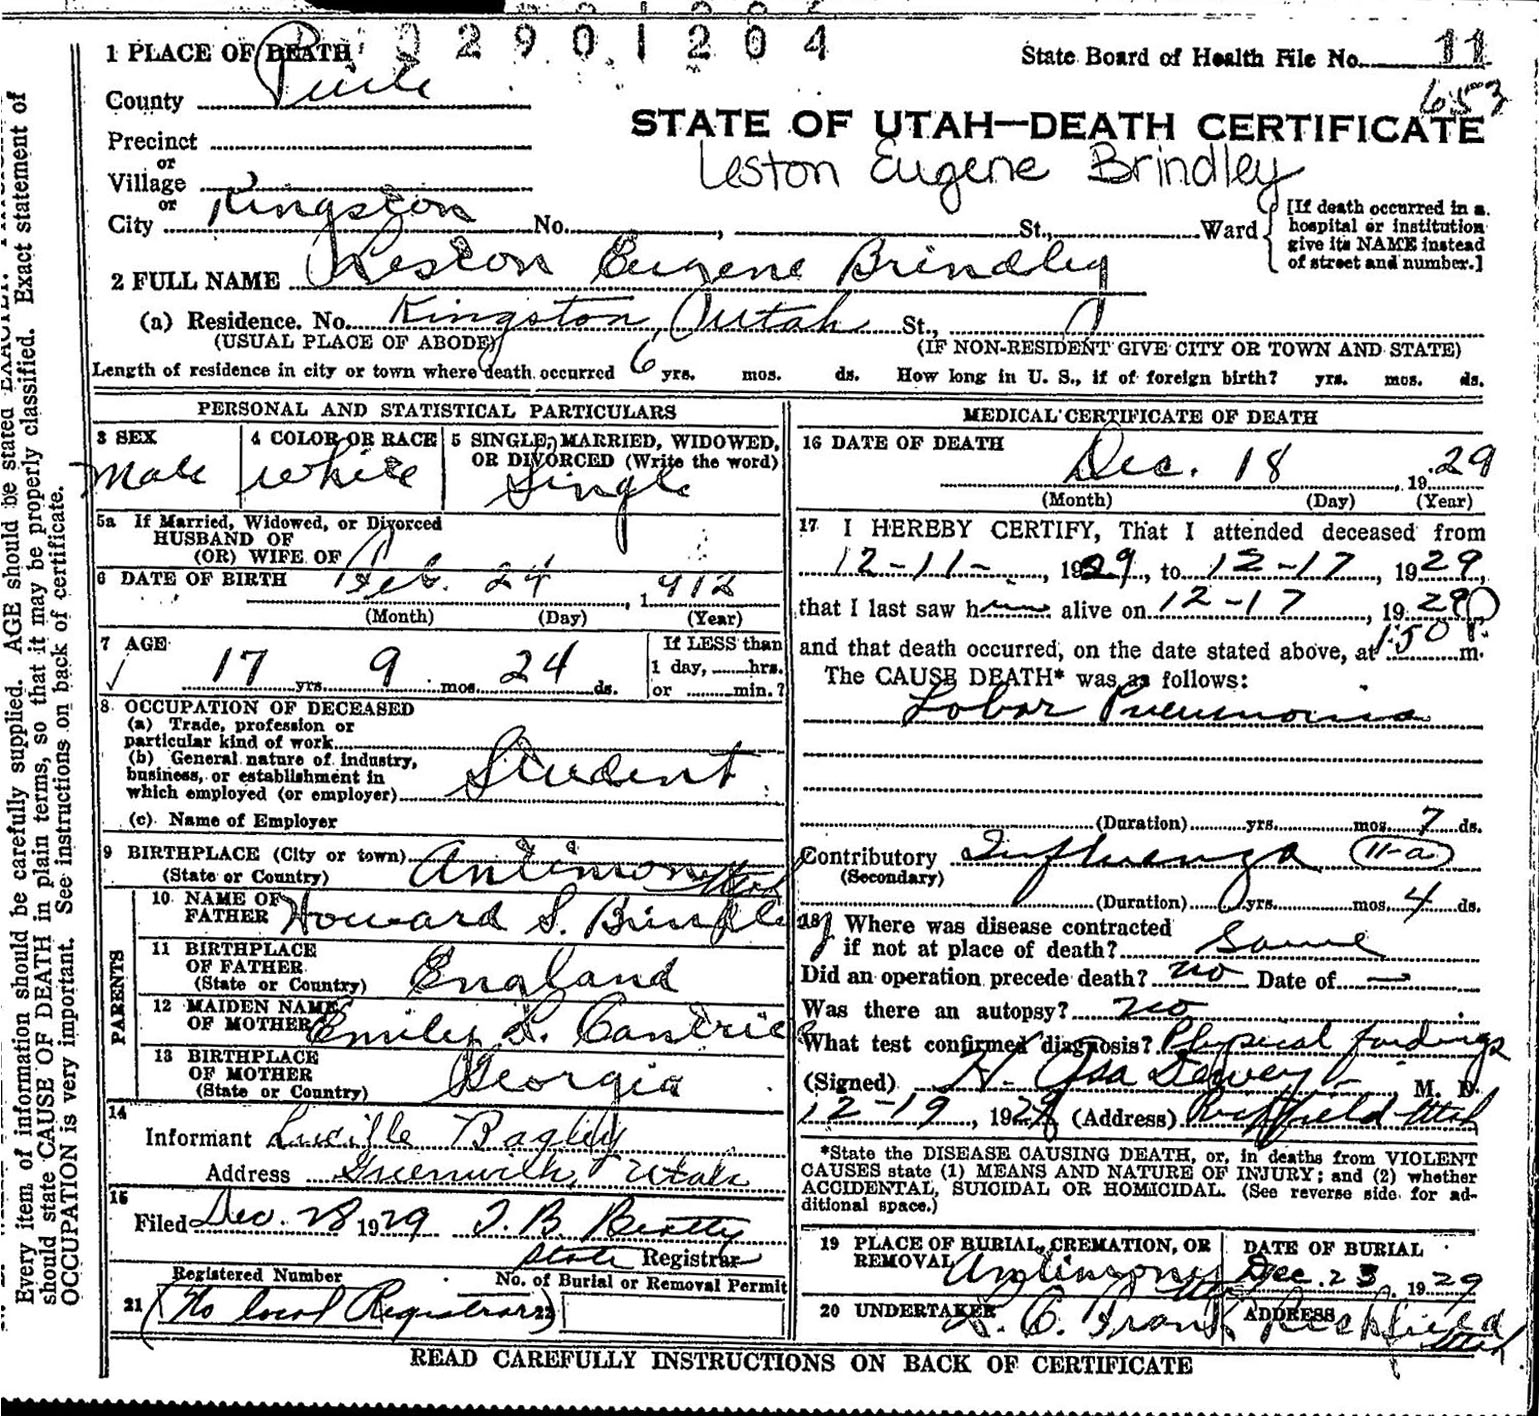 02901204
1 PLACE OF DEATH
State Board of Health File No. 11
653
County Piute
STATE OF UTAH—DEATH CERTIFICATE
Precinct
Leston Eugene Brindley
or
Village
or
City Kingston No. , St., Ward
[If death occurred in a hospital or institution give its NAME instead of street and number.]
2 FULL NAME Leston Eugene Brindley
(a) Residence. No. Kingston, Utah St.,
(USUAL PLACE OF ABODE)
(IF NON-RESIDENT GIVE CITY OR TOWN AND STATE)
Length of residence in city or town where death occurred 6 yrs. mos. ds. How long in U. S., if of foreign birth? yrs. mos. ds.
PERSONAL AND STATISTICAL PARTICULARS
3 SEX
Male
4 COLOR OR RACE
white
5 SINGLE, MARRIED, WIDOWED, OR DIVORCED (Write the word)
Single
5a If Married, Widowed, or Divorced
HUSBAND OF
(OR) WIFE OF
6 DATE OF BIRTH Feb. 24, 1912
(Month) (Day) (Year)
7 AGE
17 yrs. 9 mos. 24 ds.
If LESS than
1 day, hrs.
or min.?
8 OCCUPATION OF DECEASED
(a) Trade, profession or
particular kind of work
(b) General nature of industry,
business, or establishment in
which employed (or employer) Student
(c) Name of Employer
9 BIRTHPLACE (City or town) Antimony Utah
(State or Country)
PARENTS
10 NAME OF
FATHER Howard S. Brindley
11 BIRTHPLACE
OF FATHER
(State or Country) England
12 MAIDEN NAME
OF MOTHER Emily L.
13 BIRTHPLACE
OF MOTHER
(State or Country) Georgia
14
Informant Lucille Bagley
Address Greenwich, Utah
15
Filed Dec. 28 1929 J. B. Beatty
State Registrar
Registered Number
No. of Burial or Removal Permit
21 (No local Registrar) 22
MEDICAL CERTIFICATE OF DEATH
16 DATE OF DEATH
Dec. 18, 1929
(Month) (Day) (Year)
17 I HEREBY CERTIFY, That I attended deceased from
12-11-, 1929, to 12-17, 1929,
that I last saw him alive on 12-17, 1929
and that death occurred, on the date stated above, at 1:50 P. m.
The CAUSE DEATH* was as follows:
Lobar Pneumonia
(Duration) yrs. mos. 7 ds.
Contributory Influenza 11-a
(Secondary)
(Duration) yrs. mos. 4 ds.
18 Where was disease contracted
if not at place of death? Same
Did an operation precede death? no Date of —
Was there an autopsy? no
What test confirmed diagnosis? Physical findings
(Signed) H. Asa Dewey M. D.
12-19, 1929 (Address) Richfield Utah
*State the DISEASE CAUSING DEATH, or, in deaths from VIOLENT
CAUSES state (1) MEANS AND NATURE OF INJURY; and (2) whether
ACCIDENTAL, SUICIDAL OR HOMICIDAL. (See reverse side for ad-
ditional space.)
19 PLACE OF BURIAL, CREMATION, OR
REMOVAL Antimony Utah
DATE OF BURIAL
Dec. 23, 1929
20 UNDERTAKER
ADDRESS
Richfield Utah
READ CAREFULLY INSTRUCTIONS ON BACK OF CERTIFICATE
Every item of information should be carefully supplied. AGE should be stated EXACTLY.
should state CAUSE OF DEATH in plain terms, so that it may be properly classified. Exact statement of
OCCUPATION is very important. See instructions on back of certificate.